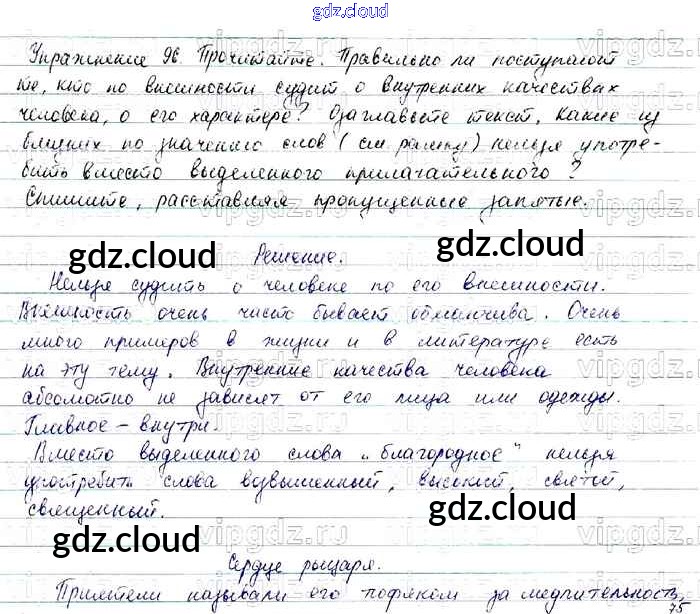 gdz.cloud
Упражнение 96. Прочитайте. Правильно ли поступают
те, кто по внешности судит о внутренних качествах
человека, о его характере? Озаглавьте текст. Какие из
близких по значению слов (см. рамку) нельзя употре-
бить вместо выделенного прилагательного?
Спишите, расставляя пропущенные запятые.
gdz.cloud Решение. gdz.cloud
Нельзя судить о человеке по его внешности.
Внешность очень часто бывает обманчива. Очень
много примеров в жизни и в литературе есть
на эту тему. Внутренние качества человека
абсолютно не зависят от его лица или одежды.
Главное – внутри.
Вместо выделенного слова „благородное" нельзя
употребить слова возвышенный, высокий, святой,
священный.
gdz.cloud gdz.cloud
Сердце рыцаря.
Приятели называли его тюфяком за медлительность,
75
vipgdz.ru